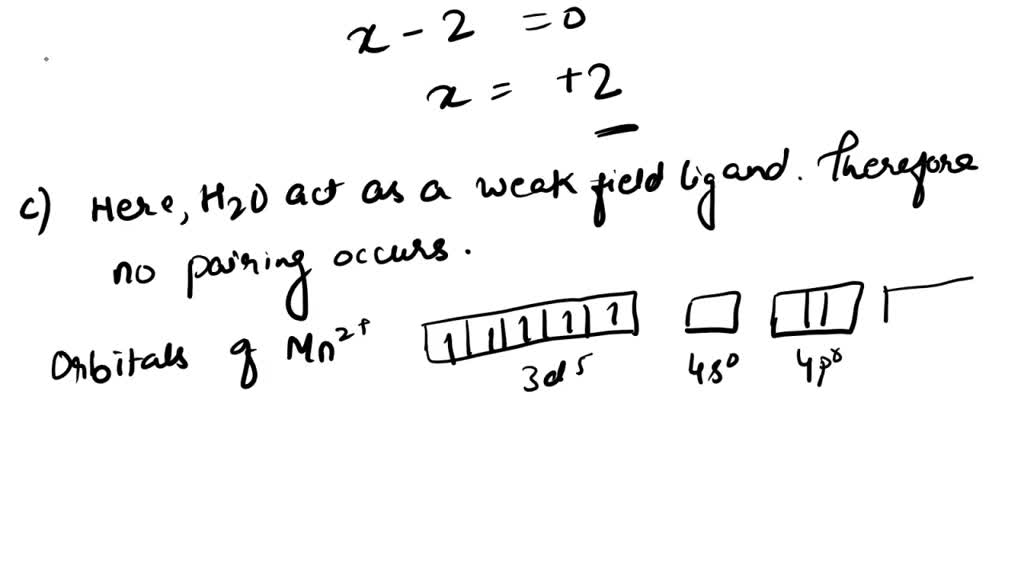 x - 2 = 0
x = +2
c) Here, H2O act as a weak field ligand. Therefore
no pairing occurs.
Orbitals of Mn2+ 1 1 1 1 1
3d5 4s0 4p0